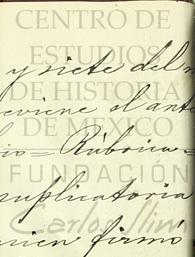 CENTRO DE
ESTUDIOS
y siete del m
DE HISTORIA
eviene el ante
DE MEXICO
io = Rúbrica =
FUNDACIÓN
suplicatoria
Carlos Slim
uien firmó